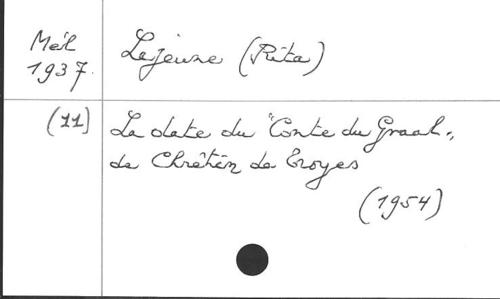 Mél
1937.
Lejeune (Rita)
(11)
La date du "Conte du Graal",
de Chrétien de Troyes
(1954)